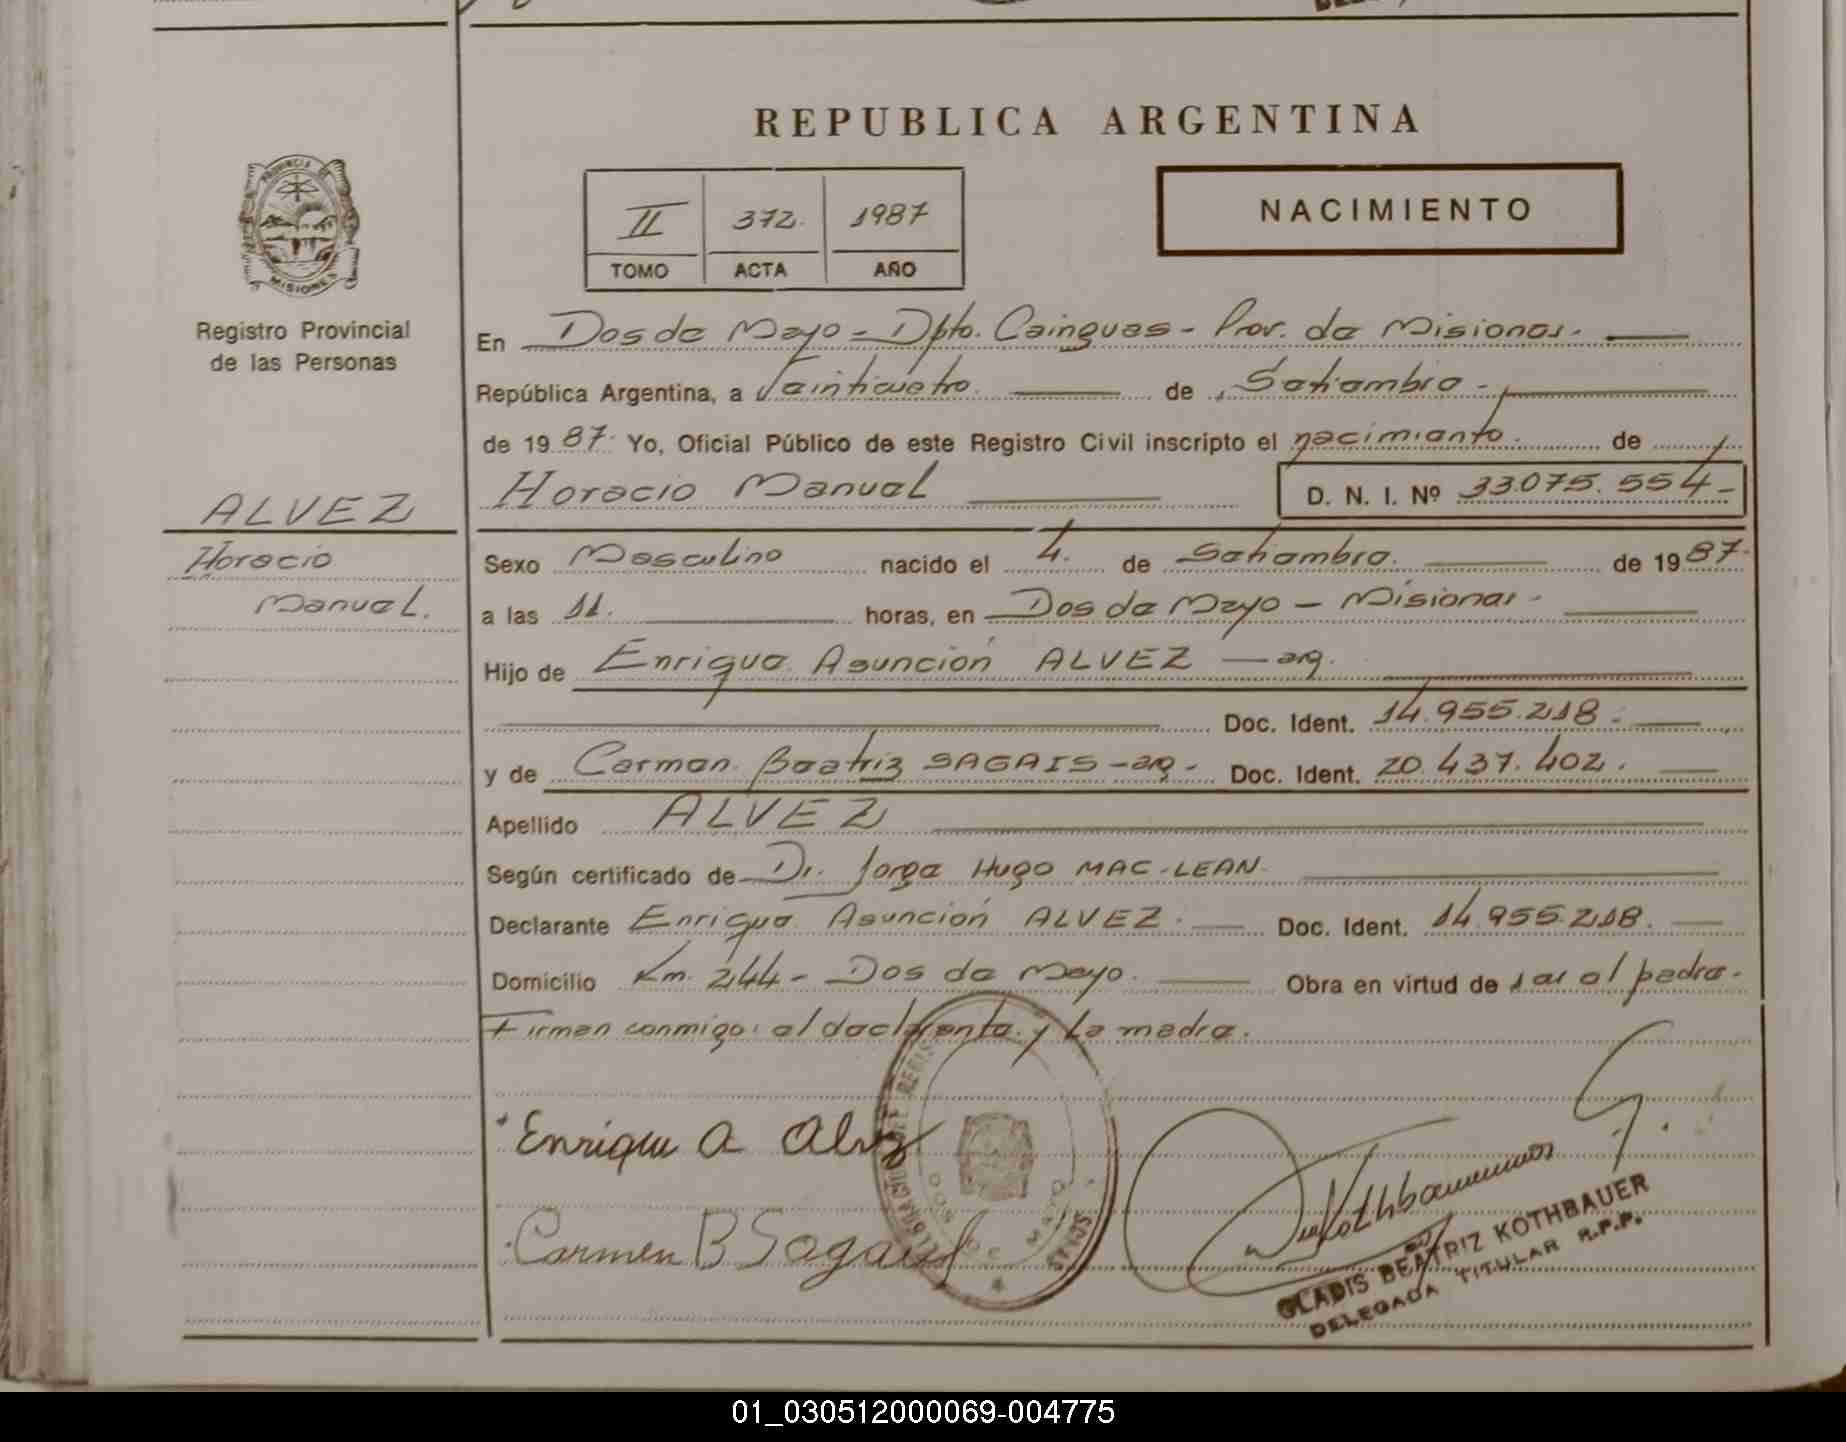 REPUBLICA ARGENTINA
PROVINCIA DE
MISIONES
Registro Provincial
de las Personas
II 372. 1987
TOMO ACTA AÑO
NACIMIENTO
En Dos de Mayo - Dpto. Cainguas - Prov. de Misiones.
República Argentina, a Veinticuatro. de Setiembre -
de 19 87. Yo, Oficial Público de este Registro Civil inscripto el nacimiento. de
Horacio Manuel D. N. I. Nº 33.075.554-
ALVEZ
Horacio
Manuel.
Sexo Masculino nacido el 4. de Setiembre. de 19 87.
a las 11. horas, en Dos de Mayo - Misiones -
Hijo de Enrique Asunción ALVEZ - arg.
Doc. Ident. 14.955.218.
y de Carmen Beatriz SAGAIS - arg - Doc. Ident. 20.437.402.
Apellido ALVEZ
Según certificado de Dr. Jorge Hugo MAC-LEAN.
Declarante Enrique Asunción ALVEZ. Doc. Ident. 14.955.218.
Domicilio Km. 244 - Dos de Mayo. Obra en virtud de ser el padre.
Firman conmigo: el declarante y la madre.
Enrique A Alvez
Carmen B Sagais
DOS DE MAYO
GLADIS BEATRIZ KOTHBAUER
DELEGADA TITULAR R.P.P.
01_030512000069-004775